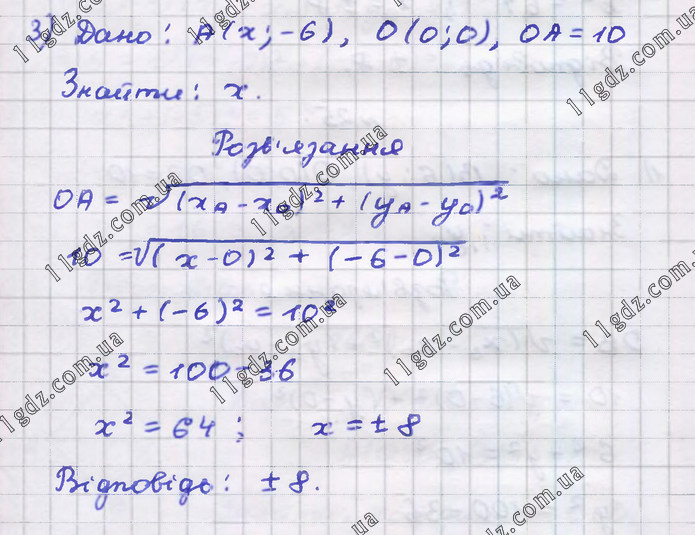 3) Дано: A(x; -6), O(0; 0), OA = 10
Знайти: x.
Розв'язання
OA = √(x_A - x_O)² + (y_A - y_O)²
10 = √(x - 0)² + (-6 - 0)²
x² + (-6)² = 10²
x² = 100 - 36
x² = 64; x = ± 8
Відповідь: ± 8.
11gdz.com.ua
11gdz.com.ua
11gdz.com.ua
11gdz.com.ua
11gdz.com.ua
11gdz.com.ua
11gdz.com.ua
11gdz.com.ua
11gdz.com.ua
11gdz.com.ua